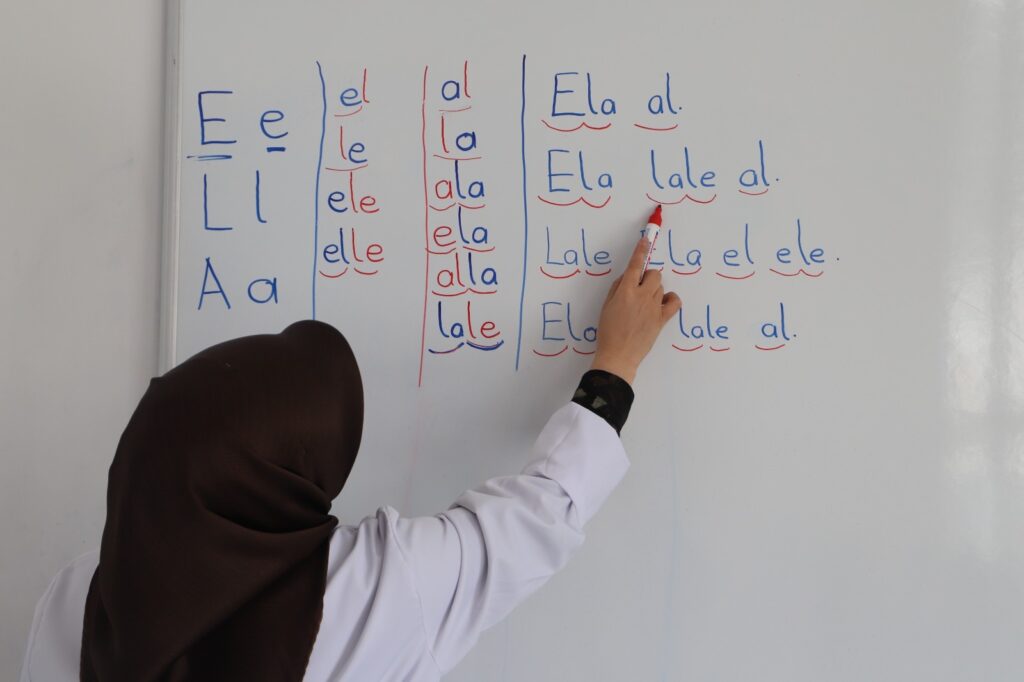 E e
L l
A a
el
le
ele
elle
al
la
ala
ela
alla
lale
Ela al.
Ela lale al.
Lale Ela el ele.
Ela lale al.